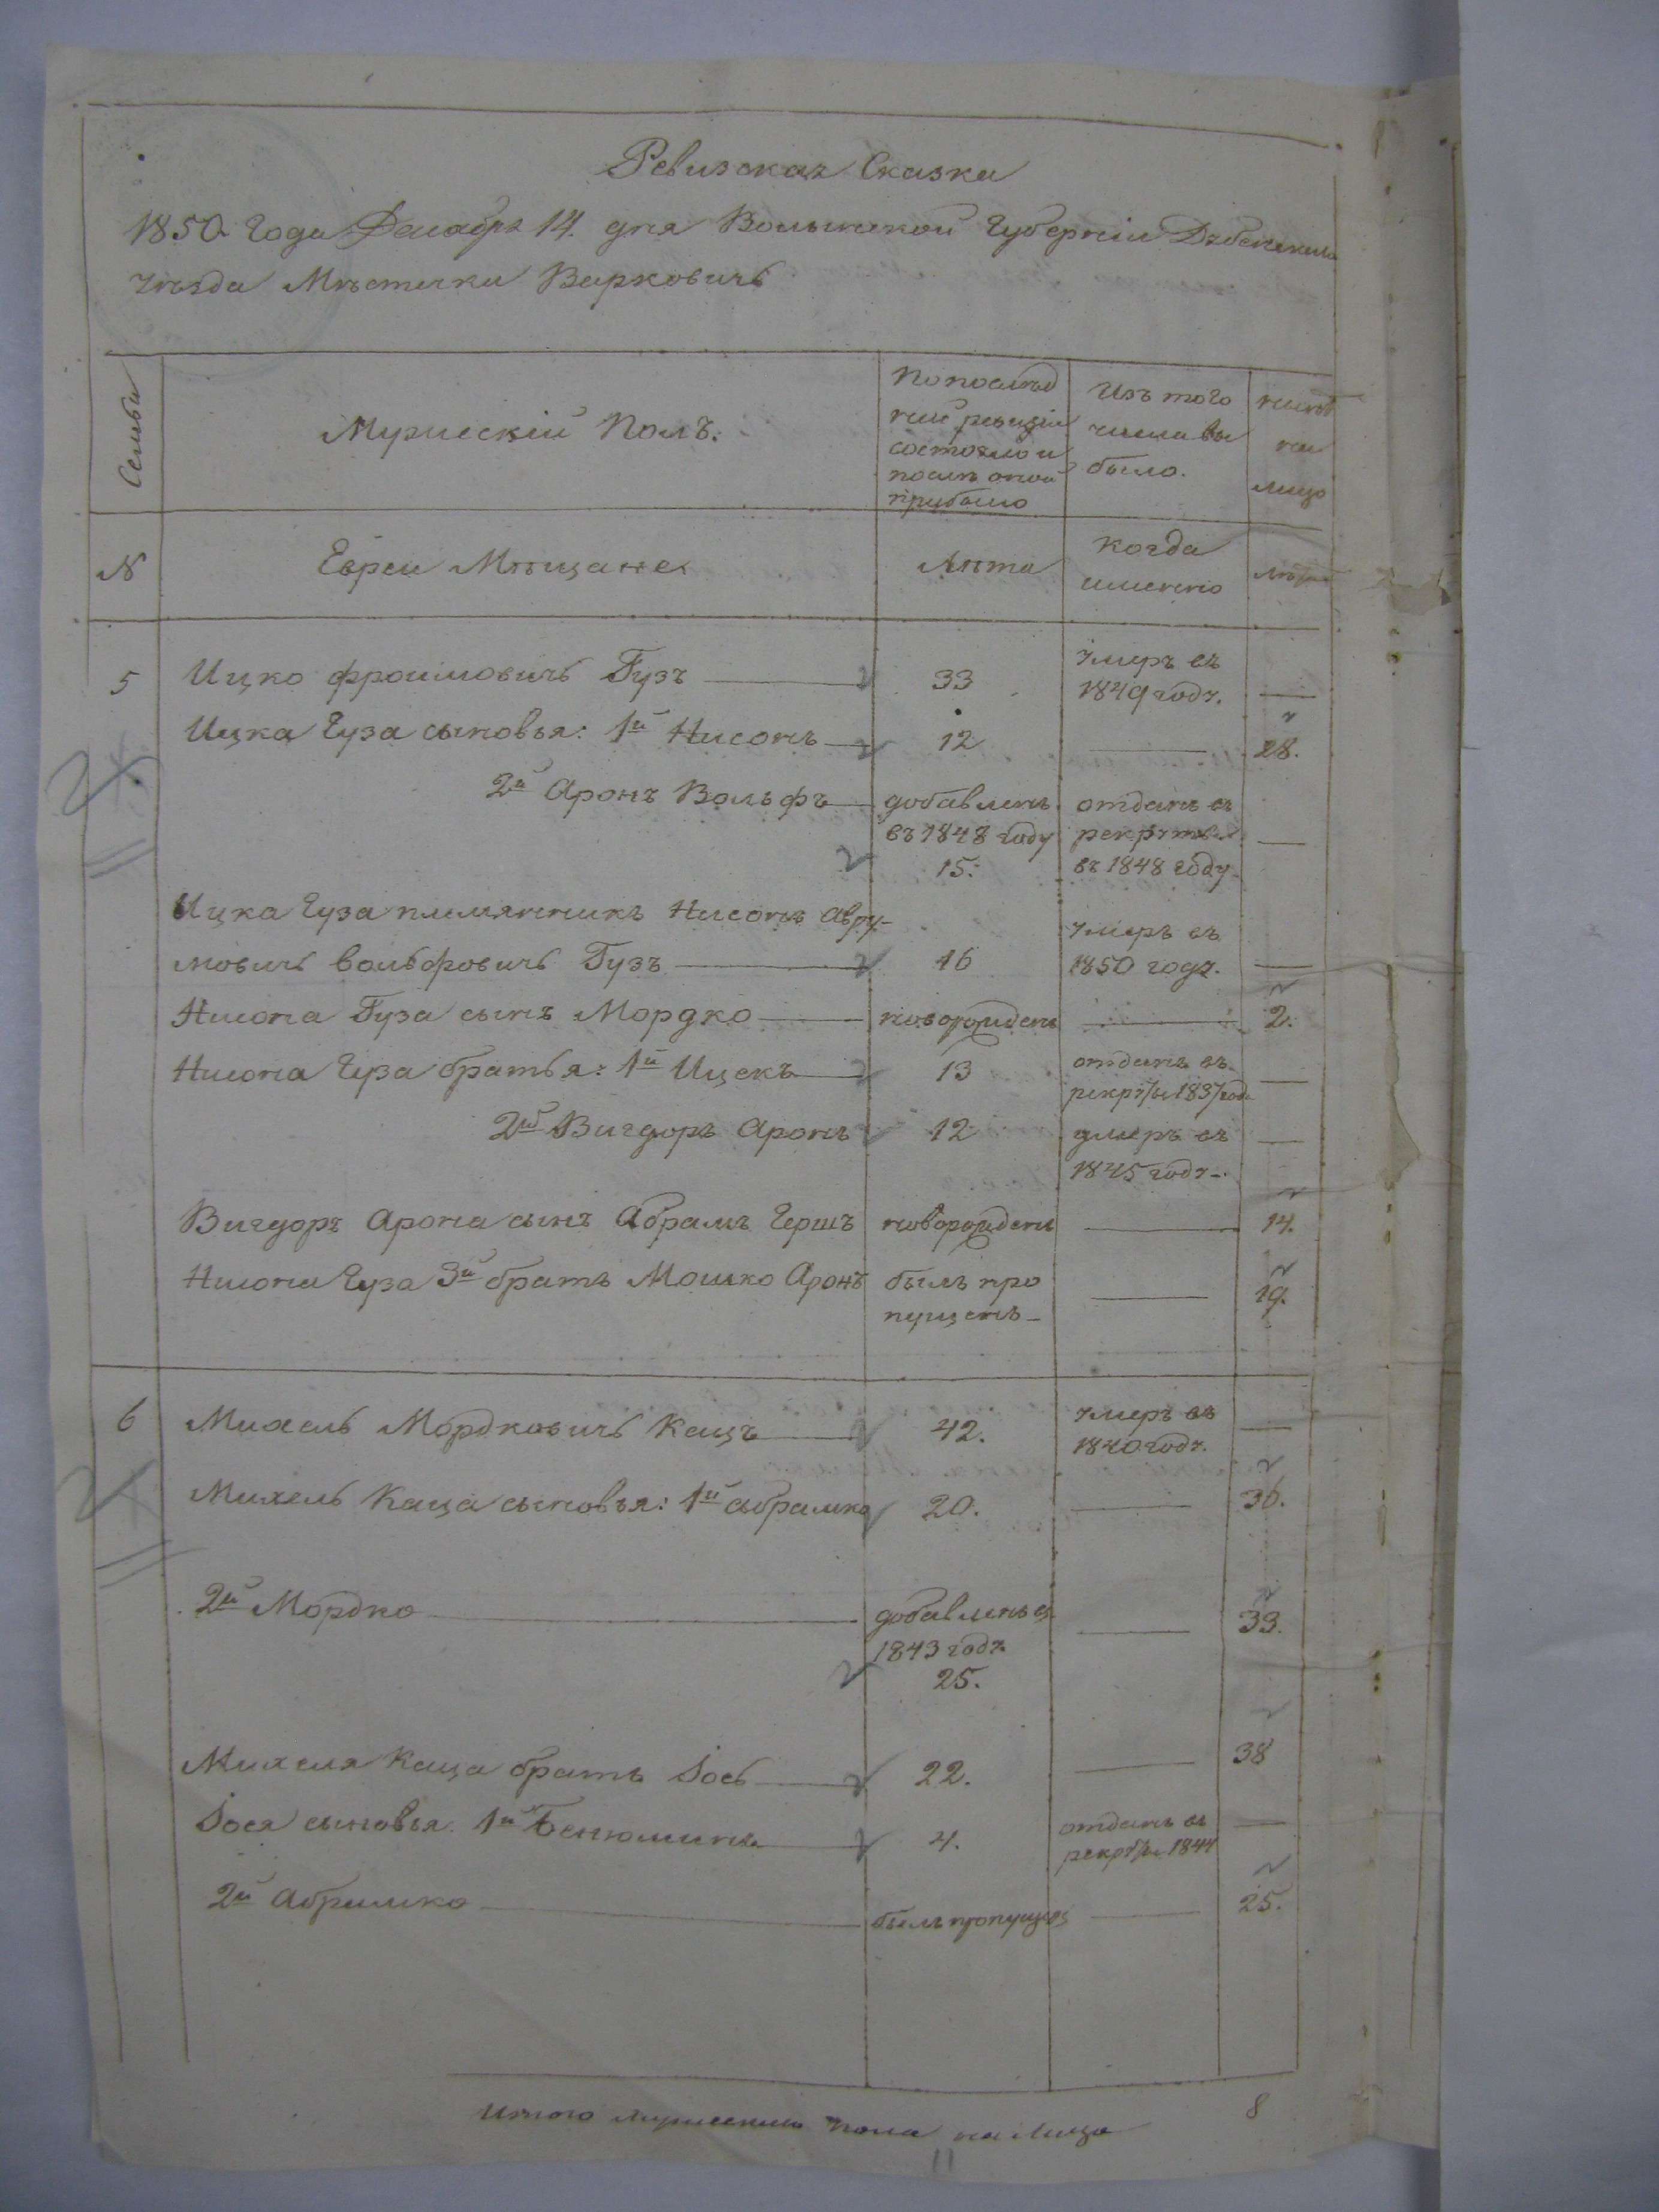 Ревизская Сказка
1850 Года Декабря 14 дня Волынской Губерніи Дубенскаго
уѣзда Мѣстечка Варковичь
Семьи
Мужескій Полъ.
По послѣд
ней ревизіи
состояло и
послѣ оной
прибыло
Изъ того
числа вы
было.
нынѣ
на
лицо
№
Евреи Мѣщане
Лѣта
Когда
именно
Лѣта
5
Ицко Фроимовичь Гузъ
33
умеръ въ
1849 году.
Ицка Гуза сыновья: 1й Нисонъ
12
28.
2й Аронъ Вольфъ
добавленъ
въ 1848 году
15.
отданъ въ
рекруты
въ 1848 году
Ицка Гуза племянникъ Нисонъ Авру-
мовичь Вольфовичь Гузъ
16
умеръ въ
1850 году.
Нисона Гуза сынъ Мордко
новорожденъ
2.
Нисона Гуза братья: 1й Ицекъ
13
отданъ въ
рекруты 1837 года
2й Вигдоръ Аронъ
12
умеръ въ
1845 году.
Вигдоръ Арона сынъ Абрамъ Гершъ
новорожденъ
14.
Нисона Гуза 3й братъ Мошко Аронъ
былъ про
пущенъ
19.
6
Михель Мордковичь Кацъ
42.
умеръ въ
1840 году.
Михель Каца сыновья: 1й Абрамко
20.
36.
2й Мордко
добавленъ в
1843 году
25.
33.
Михеля Каца братъ Іось
22.
38
Іося сыновья 1й Бенюминъ
4.
отданъ въ
рекруты 1844
2й Абрамко
былъ пропущен
25.
Итого мужескаго пола на лицо
8
11